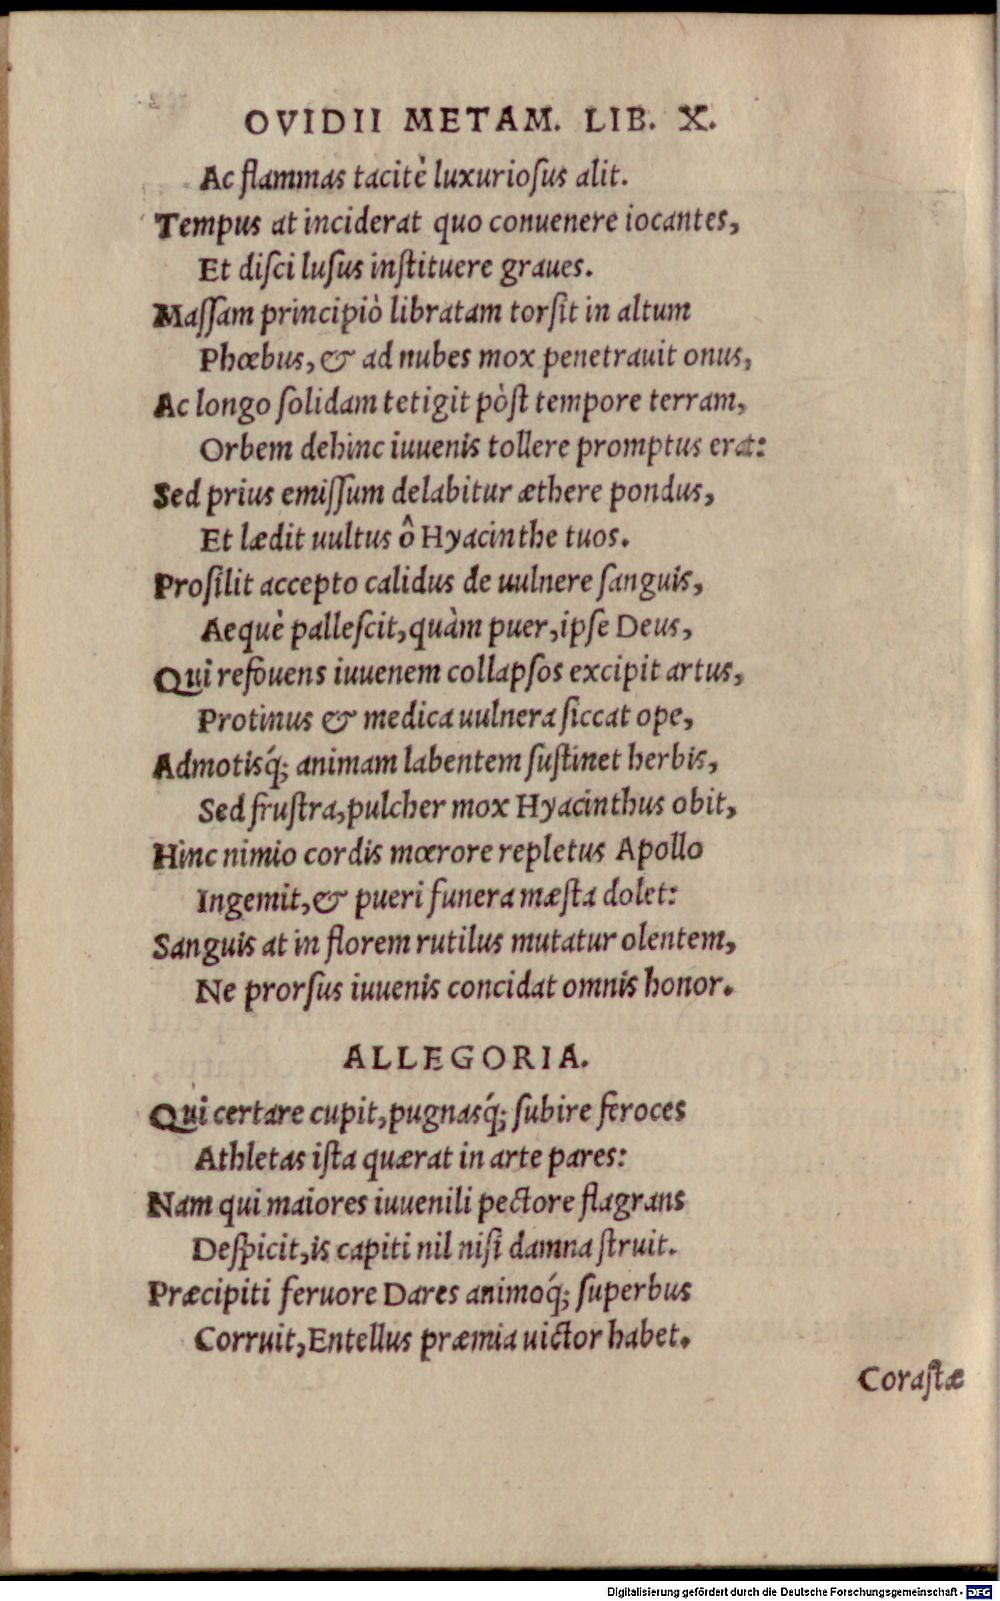 OVIDII METAM. LIB. X.
Ac flammas tacitè luxurioſus alit.
Tempus at inciderat quo conuenere iocantes,
Et diſci luſus inſtituere graues.
Maſſam principiò libratam torſit in altum
Phœbus, & ad nubes mox penetrauit onus,
Ac longo ſolidam tetigit pòſt tempore terram,
Orbem dehinc iuuenis tollere promptus erat:
Sed prius emiſſum delabitur æthere pondus,
Et lædit uultus ô Hyacinthe tuos.
Proſilit accepto calidus de uulnere ſanguis,
Aequè palleſcit, quàm puer, ipſe Deus,
Qui refouens iuuenem collapſos excipit artus,
Protinus & medica uulnera ſiccat ope,
Admotisq́; animam labentem ſuſtinet herbis,
Sed fruſtra, pulcher mox Hyacinthus obit,
Hinc nimio cordis mœrore repletus Apollo
Ingemit, & pueri funera mæſta dolet:
Sanguis at in florem rutilus mutatur olentem,
Ne prorſus iuuenis concidat omnis honor.
ALLEGORIA.
Qui certare cupit, pugnasq́; ſubire feroces
Athletas iſta quærat in arte pares:
Nam qui maiores iuuenili pectore flagrans
Deſpicit, is capiti nil niſi damna ſtruit.
Præcipiti feruore Dares animoq́; ſuperbus
Corruit, Entellus præmia uictor habet.
Coraſtæ
Digitalisierung gefördert durch die Deutsche Forschungsgemeinschaft - DFG